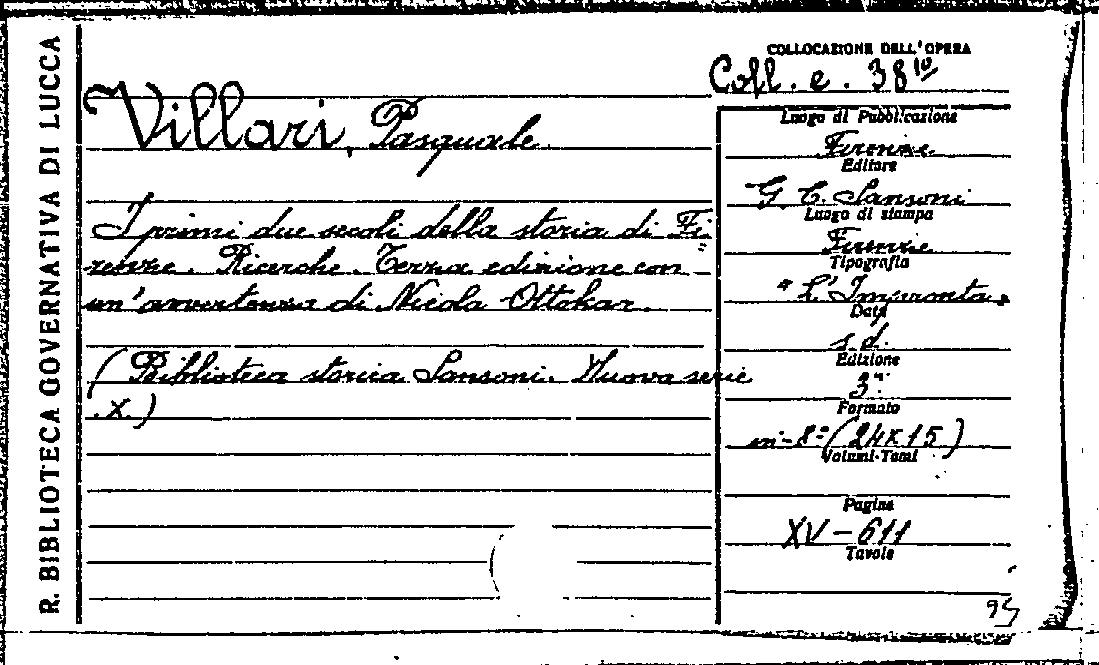 R. BIBLIOTECA GOVERNATIVA DI LUCCA
COLLOCAZIONE DELL'OPERA
Coll. e. 38¹⁰
Villari, Pasquale.
I primi due secoli della storia di Fi=
renze. Ricerche. Terza edizione con
un'avvertenza di Nicola Ottokar.
(Biblioteca storica Sansoni. Nuova serie
.X.)
Luogo di Pubblicazione
Firenze
Editore
G. C. Sansoni
Luogo di stampa
Firenze
Tipografia
"L'Impronta"
Data
s. d.
Edizione
3ª
Formato
in-8° (24x15)
Volumi-Tomi
Pagine
XV-611
Tavole